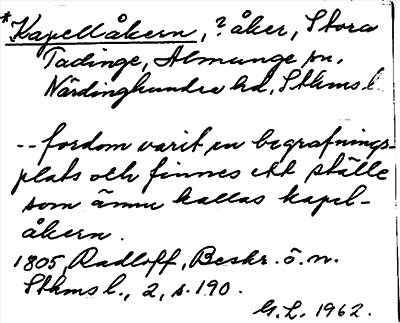 *Kapellåkern, ? åker, Stora
Tadinge, Almunge sn,
Närdinghundra hd, Sthms l.
-- fordom varit en begrafnings-
plats och finnes ett ställe
som ännu kallas kapel-
åkern.
1805, Radloff, Beskr. ö. n.
Sthms l., 2, s. 190.
G. L. 1962.